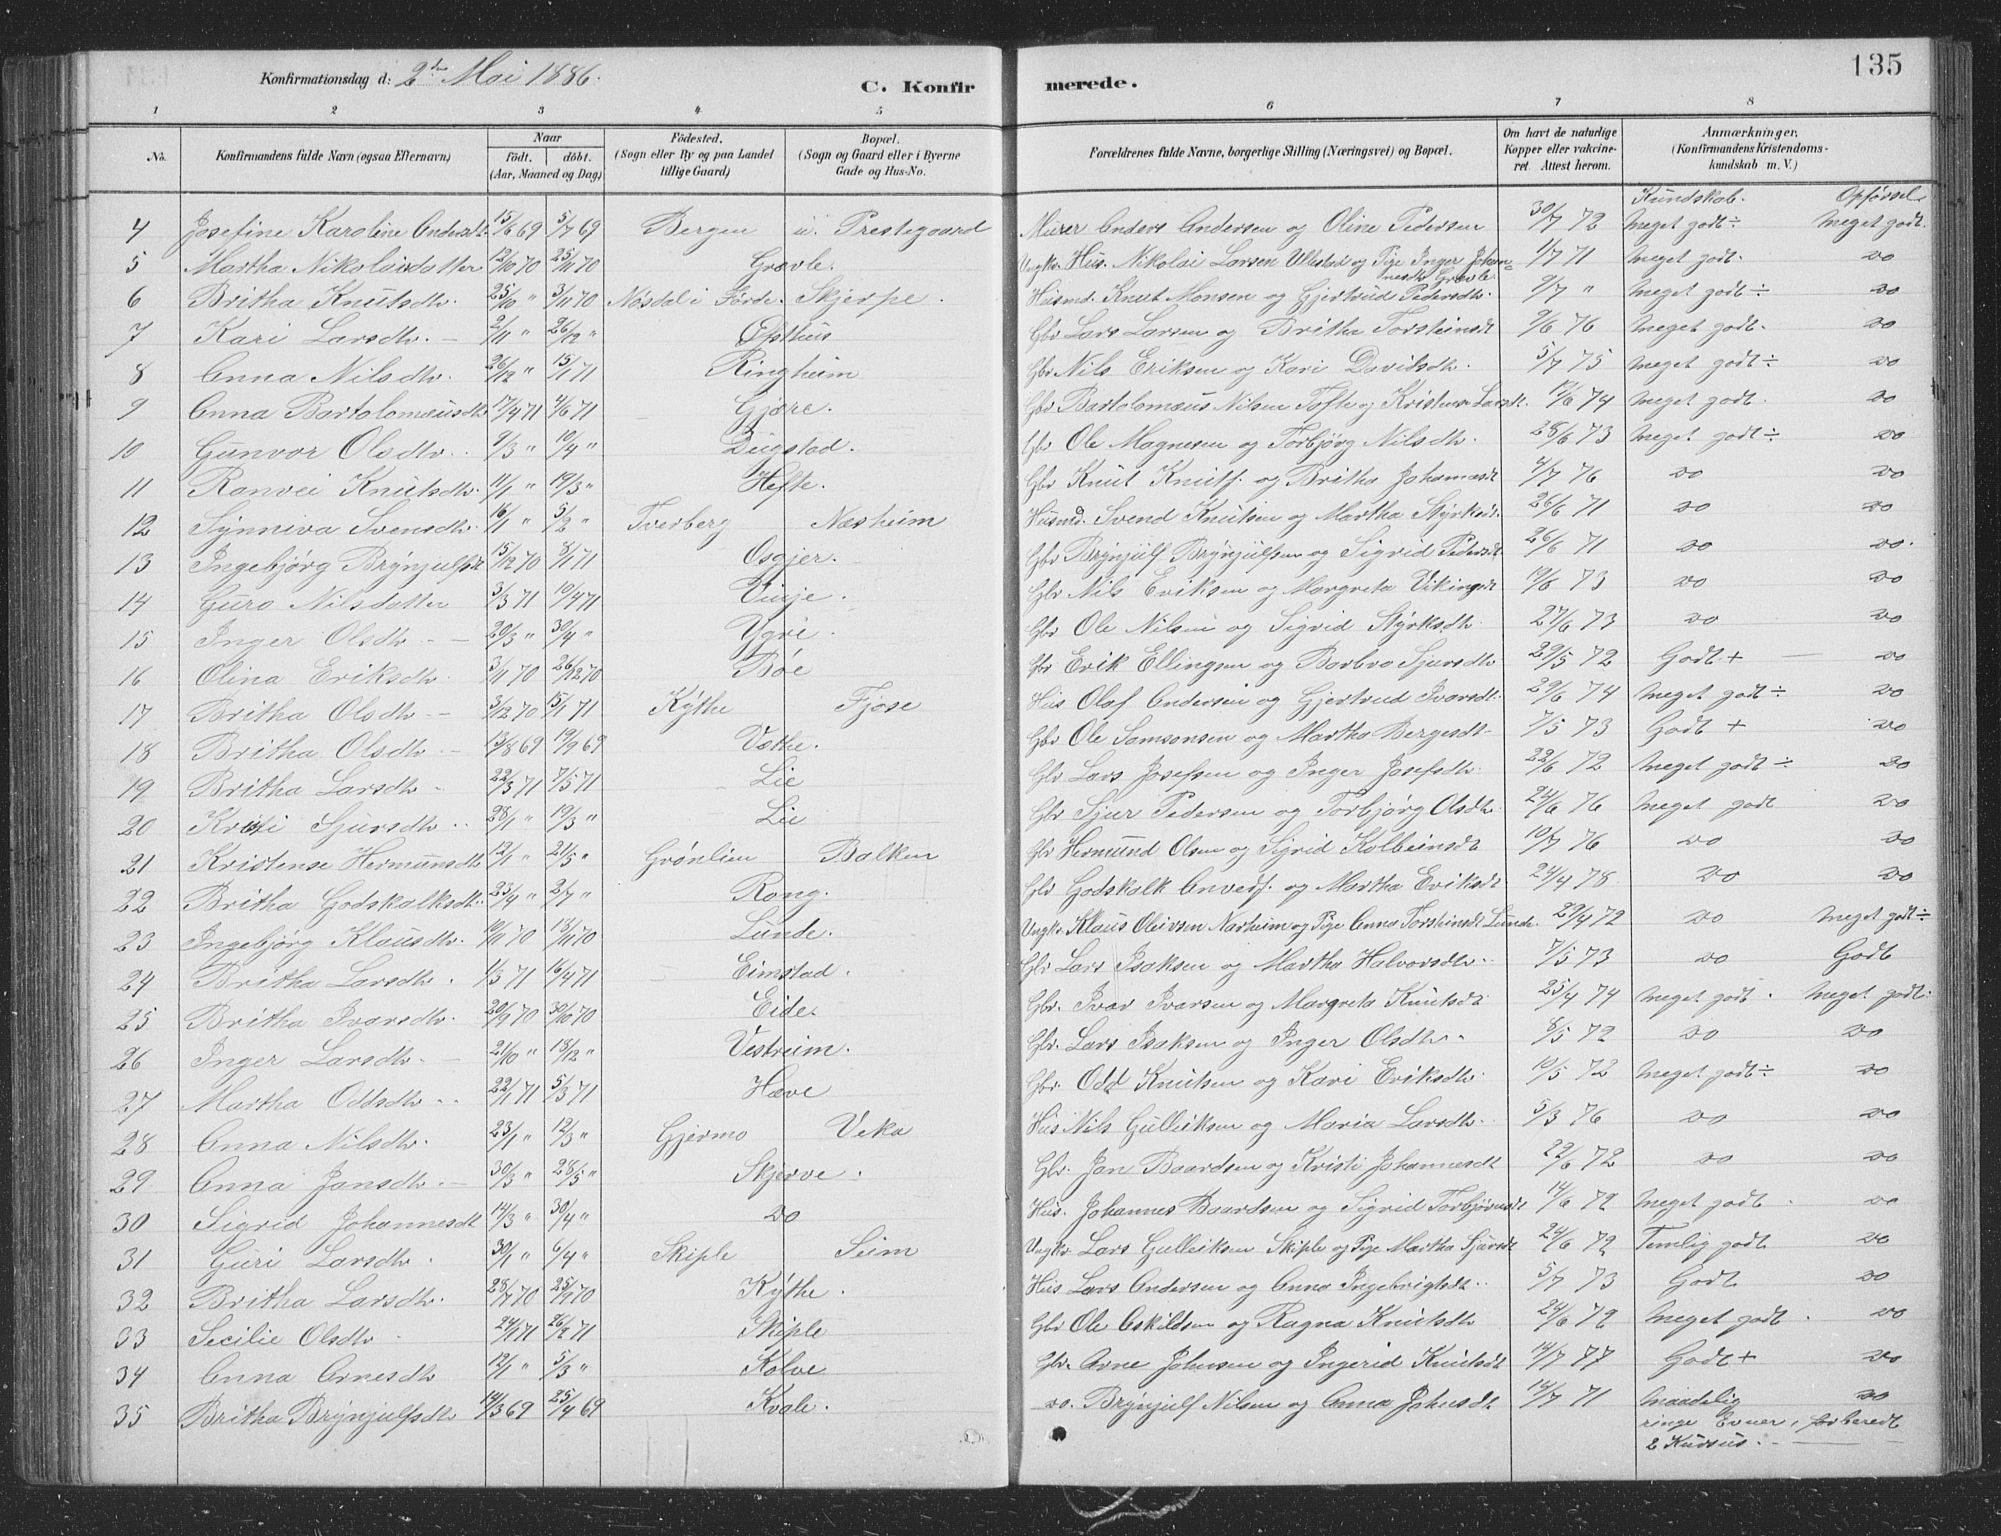 135
Konfirmationsdag d: 2den Mai 1886.
C. Konfirmerede.
1 2 3 4 5 6 7 8
No. Konfirmandens fulde Navn (ogsaa Efternavn) Naar født. døbt. (Aar, Maaned og Dag) Fødested. (Sogn eller By og paa Landet tillige Gaard) Bopæl. (Sogn og Gaard eller i Byerne Gade og Hus-No. Forældrenes fulde Navne, borgerlige Stilling (Næringsvei) og Bopæl. Om havt de naturlige Kopper eller vakcineret. Attest herom. Anmærkninger. (Konfirmandens Kristendomskundskab m. V.)
Kundskab. Opførsel.
4 Josefine Karoline Andersdt 15/6 69 5/7 69 Bergen u. Prestegaard Murer Anders Andersen og Oline Pedersen 30/7 72 Meget godt ÷ Meget godt.
5 Martha Nikolaisdatter 12/10 70 25/11 70 Grovle. Ungk. Hus. Nikolai Larsen Ullestad og Pige Inger Johannesdt Grovle. 1/7 71 Meget godt. do
6 Britha Knutsdtr. 25/10 " 3/11 70 Nosdal i Førde Skjerpe. Husmd. Knut Monsen og Gjertrud Pedersdtr. 9/7 " Meget godt ÷ do
7 Kari Larsdtr. 2/11 " 26/12 " Opsthus Gbr Lars Larsen og Britha Torsteinsdt 9/6 76 Meget godt. do
8 Anna Nilsdtr. 26/12 " 15/1 71 Ringheim Gbr Nils Eriksen og Kari Davidsdtr. 5/7 75 Meget godt ÷ do
9 Anna Bartolomæusdtr 17/4 71 4/6 71 Gjøre. Gbr Bartolomæus Nilsen Tofte og Kristense Larsdt. 12/6 74 Meget godt. do
10 Gunvor Olsdtr. 9/3 " 10/4 " Dugstad. Gbr Ole Magnesen og Torbjørg Nilsdtr. 28/6 73 Meget godt ÷ do
11 Ranvei Knutsdtr. 11/1 " 19/3 " Hefte. Gbr Knut Knutf. og Britha Johannesdt 4/7 76 do do
12 Synniva Svensdtr. 16/1 " 5/2 " Tverberg Næsheim Husmd. Svend Knutsen og Martha Styrksdt. 26/6 71 do do
13 Ingebjørg Brynjulfsdt 15/12 70 8/1 71 Osgjer. Gbr Brynjulf Brynjulfsen og Sigrid Pedersdt 26/6 71 do do.
14 Guro Nilsdatter 3/3 71 10/4 71 Vinje. Gbr Nils Eriksen og Margreta Vikingsdt 19/6 73 do do
15 Inger Olsdtr. 20/3 " 30/4 " Ygre. Gbr Ole Nilsen og Sigrid Styrksdtr. 27/6 73 do do
16 Olina Eriksdtr. 3/11 70 26/12 70 Bøe Gbr Erik Ellingsen og Barbro Sjursdtr. 29/5 72 Godt + do
17 Britha Olsdtr. 3/12 70 15/1 71 Kythe Fjose Hus Olaf Andersen og Gjertrud Ivarsdt. 29/6 74 Meget godt ÷ do
18 Britha Olsdtr. 13/8 69 19/9 69 Væthe. Gbr Ole Samsonsen og Martha Bergesdt 7/5 73 Godt + do
19 Britha Larsdtr. 22/3 71 7/5 71 Lie Gbr Lars Josefsen og Inger Josefsdtr. 22/6 72 Meget godt ÷ do
20 Kristi Sjursdtr. 28/1 " 19/3 " Lie Gbr Sjur Pedersen og Torbjørg Olsdtr. 24/6 76 Meget godt do
21 Kristense Hermunsdtr 12/1 " 21/5 " Grønlien Balken Gbr Hermund Olsen og Sigrid Kolbeinsdt 10/7 76 do do
22 Britha Godskalksdt. 23/4 " 2/7 " Rong. Gbr Godskalk Anvedf. og Martha Eriksdt 24/4 78 do do
23 Ingebjørg Klausdtr. 10/11 70 13/11 70 Lunde. Ungkr. Klaus Oleivsen Narheim og Pige Anna Torsteinsdt Lunde. 29/4 72 do Meget godt ÷
24 Britha Larsdtr. 1/3 71 16/4 71 Eimstad. Gbr Lars Isaksen og Martha Halvorsdtr. 7/5 73 do Godt
25 Britha Ivarsdtr. 20/9 70 30/10 70 Eide. Gbr. Ivar Ivarsen og Margreta Knutsdt. 25/4 74 Meget godt. Meget godt.
26 Inger Larsdtr. 21/10 " 18/12 " Vestreim. Gbr. Lars Isaksen og Inger Olsdtr. 8/5 72 do do
27 Martha Oddsdtr. 22/1 71 5/3 71 Hæve Gbr. Odd Knutsen og Kari Eriksdtr. 10/5 72 Meget godt ÷ do
28 Anna Nilsdtr. 23/1 " 12/3 " Gjermo Veka Hus Nils Gulleiksen og Maria Larsdtr. 5/3 76 do do
29 Anna Jansdtr. 30/3 " 28/5 " Skjerve. Gbr. Jan Baardsen og Kristi Johannesdt 22/6 72 do do
30 Sigrid Johannesdt 14/3 " 30/4 " do Hus. Johannes Baardsen og Sigrid Torbjørnsdt 14/6 72 Meget godt. do
31 Guri Larsdtr. 30/1 " 6/4 " Skiple Seim Ungkr. Lars Gulleiksen Skiple og Pige Martha Sjursdt 24/6 72 Temlig godt do
32 Britha Larsdtr. 28/7 70 25/9 70 Kythe. Hus Lars Andersen og Anna Ingebrigtsdt. 5/7 73 Godt do
33 Secilie Olsdtr. 24/1 71 26/2 71 Skiple Gbr Ole Askildsen og Ragna Knutsdtr 24/6 72 Meget godt. do
34 Anna Arnesdtr 12/1 " 5/3 " Kolve Gbr. Arne Johnsen og Ingerid Knutsdt 14/7 77 Godt + do
35 Britha Brynjulfsdtr 14/3 69 25/4 69 Kvale. do. Brynjulf Nilsen og Anna Johnsdt 14/7 71 Maadelig do
ringe Evner, forberedt
2 Kursus.